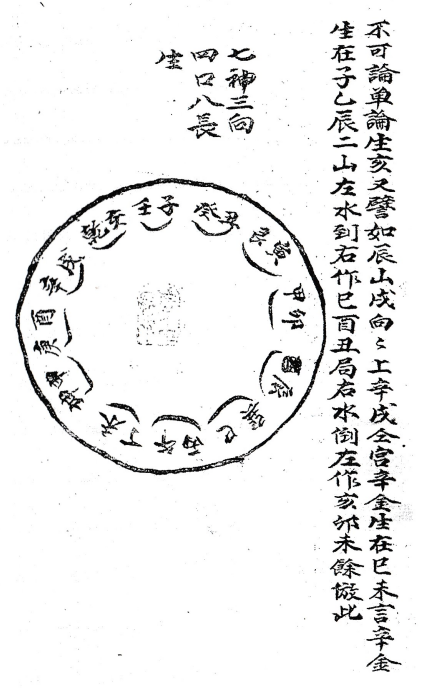 不可論单論生亥又譬如辰山戌向〻上辛戌仝宫辛金生在巳未言辛金
生在子乙辰二山左水到右作巳酉丑局右水倒左作亥卯未餘倣此
七神三向
四口八長
生
壬子
癸丑
艮寅
甲卯
辰
巽巳
丙午
丁未
坤申
庚酉
辛戌
乾亥